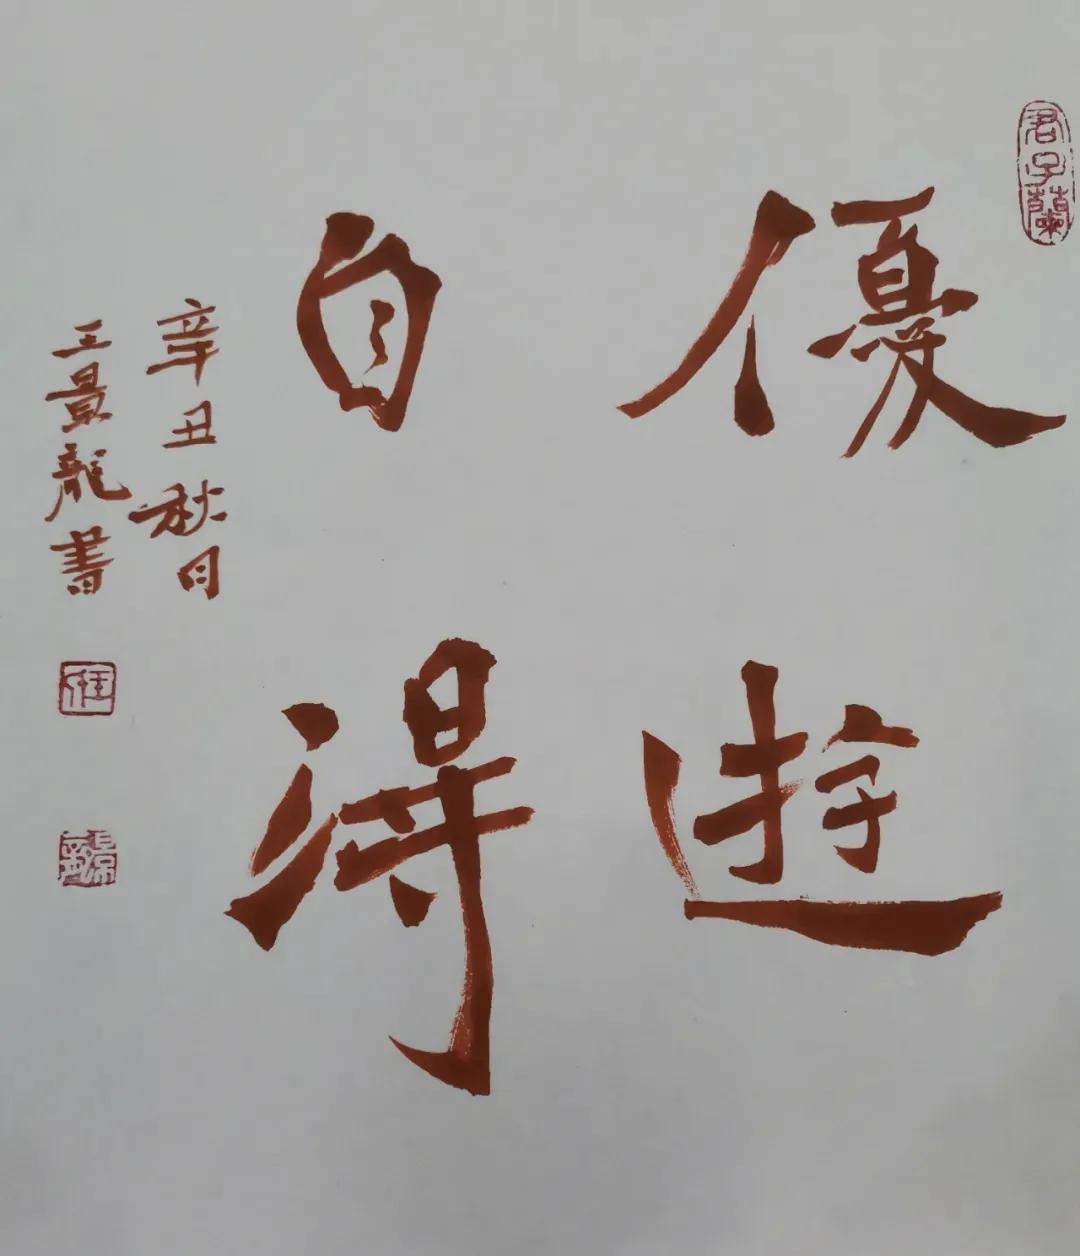 君子蘭
優遊
自得
辛丑秋月
王景龍書